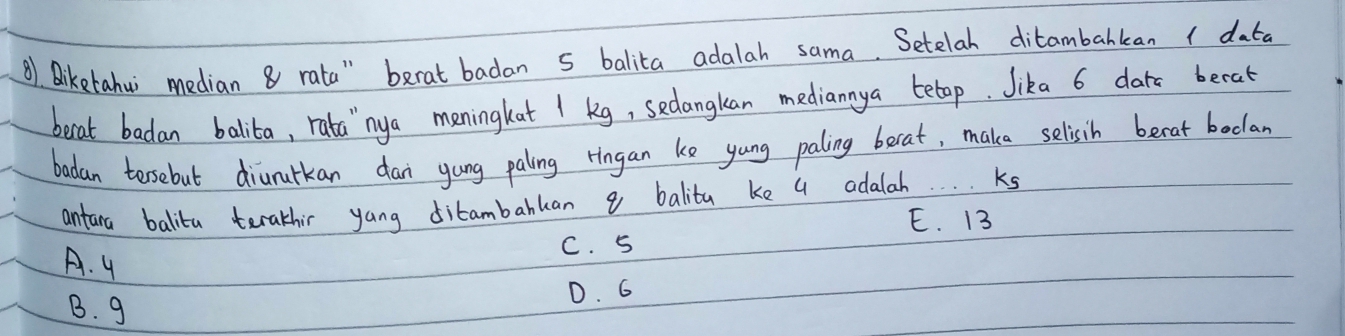 8). Diketahui median & rata" berat badan 5 balita adalah sama. Setelah ditambahkan 1 data
berat badan balita, rata"nya meningkat 1 kg, sedangkan mediannya tetap. Jika 6 data berat
badan tersebut diurutkan dari yang paling ringan ke yang paling berat, maka selisih berat badan
antara balita terakhir yang ditambahkan & balita ke 4 adalah .... kg
A. 4
C. 5
E. 13
B. 9
D. 6